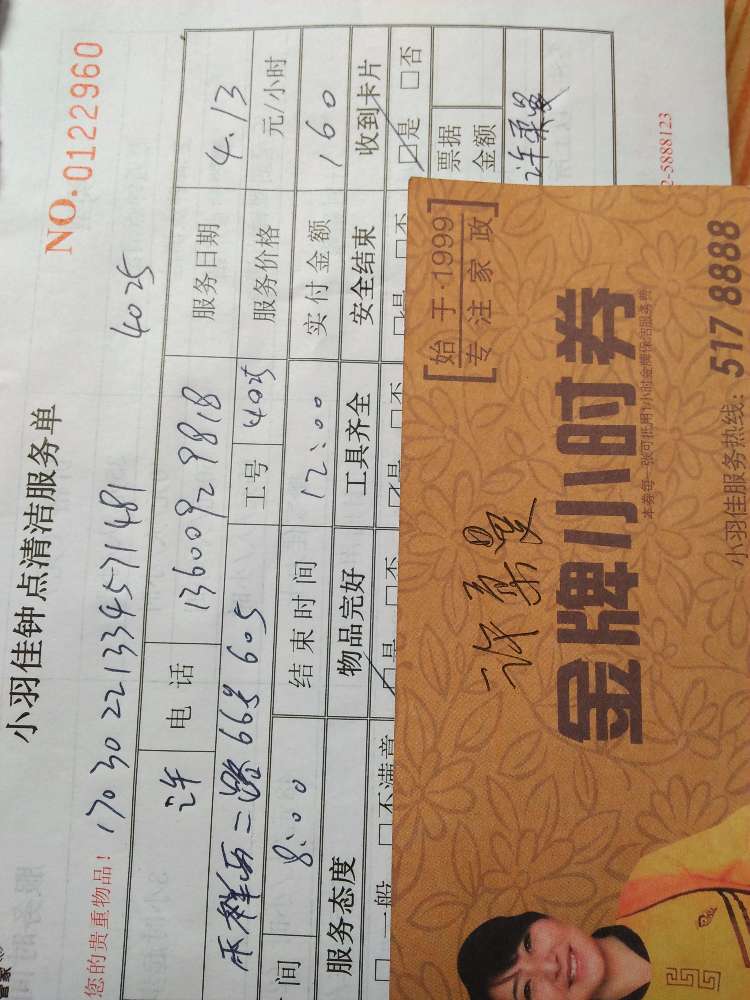 小羽佳钟点清洁服务单
NO.0122960
您的贵重物品！ 17030221334571481 4025
许 电 话 13600929818 服务日期 4.13
禾祥西二路66号605 工号 4025 服务价格 元/小时
间 8:00 结束时间 12:00 实付金额 160
服务态度 物品完好 工具齐全 安全结束 收到卡片
□一般 □不满意 □是 □否 □是 □否 □是 □否 □是 □否
票据
金额
2-5888123
始于·1999
专注家政
金牌小时券
本券每一张可抵用1小时金牌保洁服务费
小羽佳服务热线：517 8888